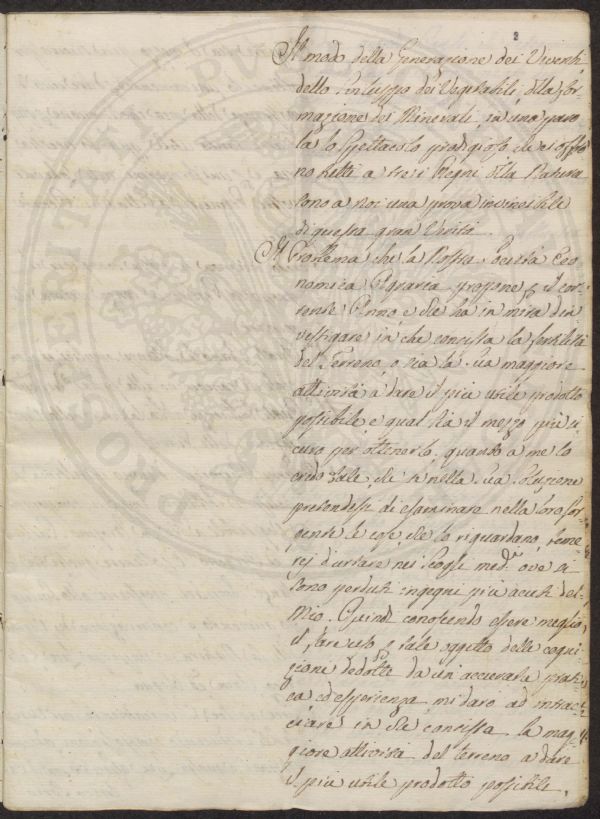 3
Il modo della Generazione dei Viventi
dello sviluppo dei Vegetabili, della for-
mazione dei Minerali, in una paro
la lo spettacolo prodigioso che ci offro
no tutti a tre i Regni della Natura
sono a noi una prova invincibile
di questa gran Verità.
Il Problema che la Nostra Società Eco
namica Agraria propone p il cor-
rente Anno e che ha in mira d'in
vestigare in che consista la fertilità
del Terreno, o sia la sua maggiore
attività a dare il più utile prodotto
possibile e qual sia il mezzo più si
curo per ottenerlo, quando a me lo
credo tale, che se nella sua soluzione
pretendessi di esaminare nella loro sor-
gente le cose, che lo riguardano, teme
rej d'urtare nei scogli med.mi ove si
sono perduti ingegni più acuti del
Mio. Quindi conoscendo essere meglio
il fare uso p tale oggetto delle cogni
zioni dedotte da un accurata prati
ca ed esperienza mi darò ad intrac
ciare in che consista la mag
giore attività del terreno a dare
il più utile prodotto possibile,
PRO
PUBL